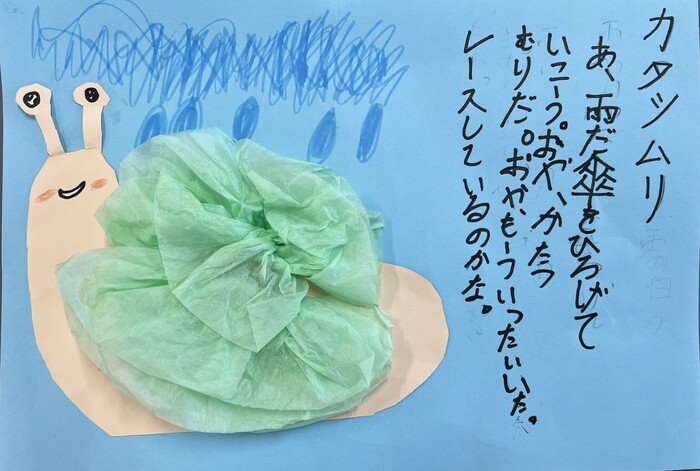 カタツムリ
あ、雨だ傘をひろげて
いこーう。おや、かたつ
むりだ。おや、もーついったいいた。
レースしているのかな。